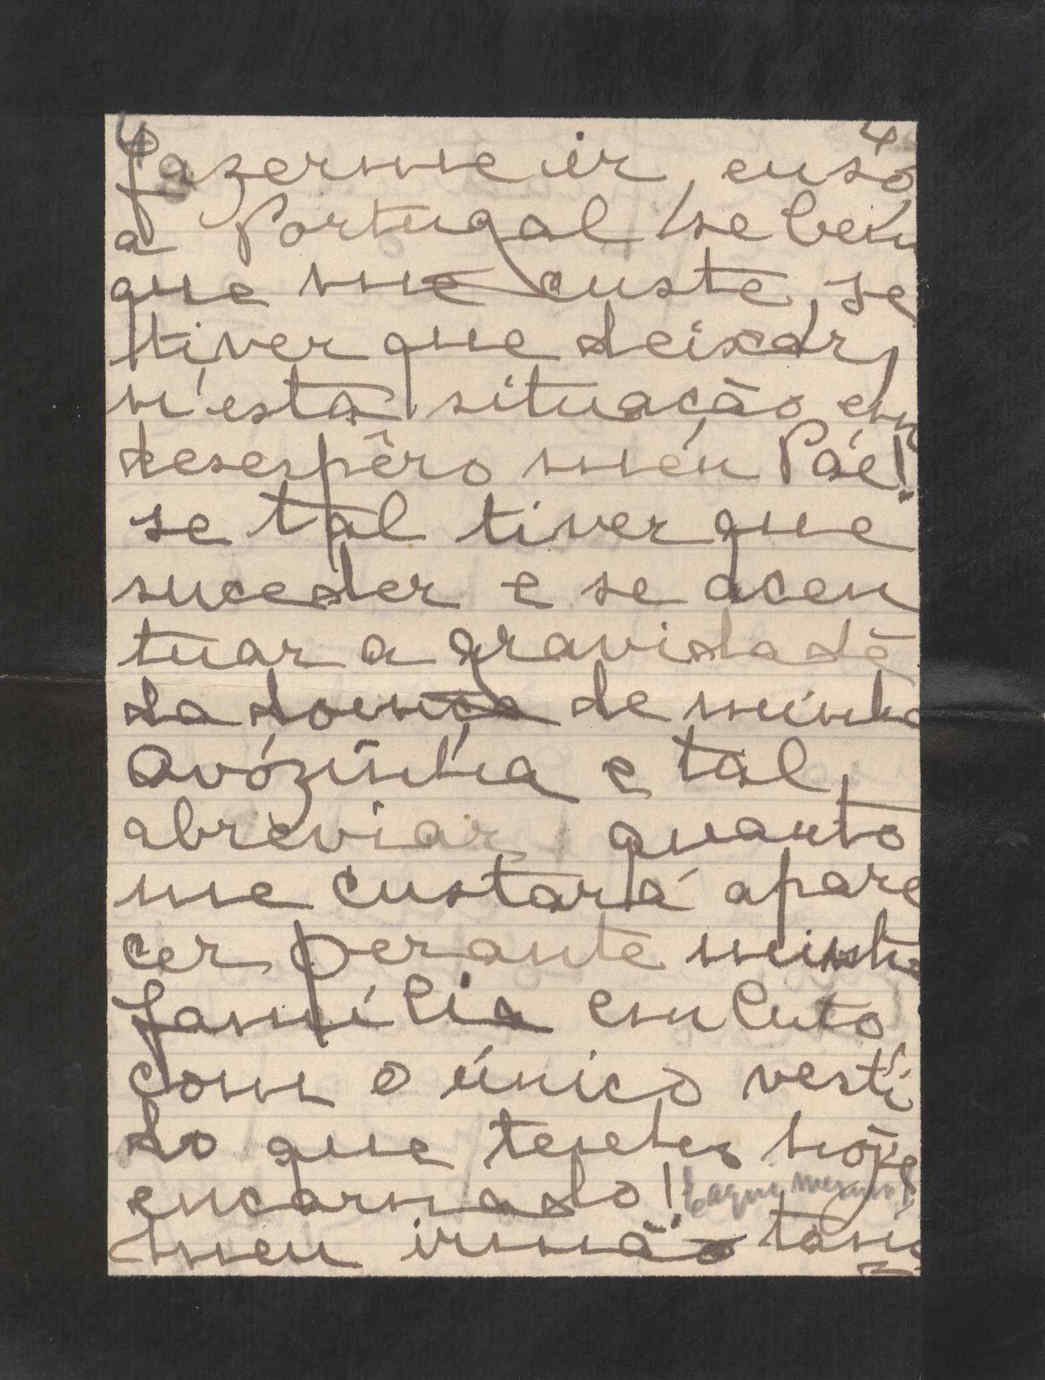 4 4
fazerme ir, eu só
a Portugal se bem
que me custe, se
tiver que deixar,
n'esta situação em
desespêro meu Páe!
se tal tiver que
suceder e se acen
tuar a gravidade
da doença de minha
avózinha e tal,
abreviar, quanto
me custará apare
cer perante minha
família em luto
com o único vesti
do que tenho hoje
encarnado! (aqui mesmo)
meu irmão tam